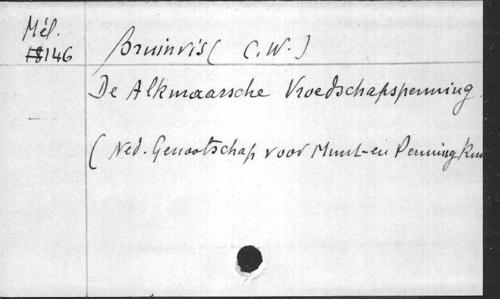 Mél.
146 Bruinvis (C.W.)
De Alkmaarsche Vroedschapspenning.
(Ned. Genootschap voor Munt-en Penningkun